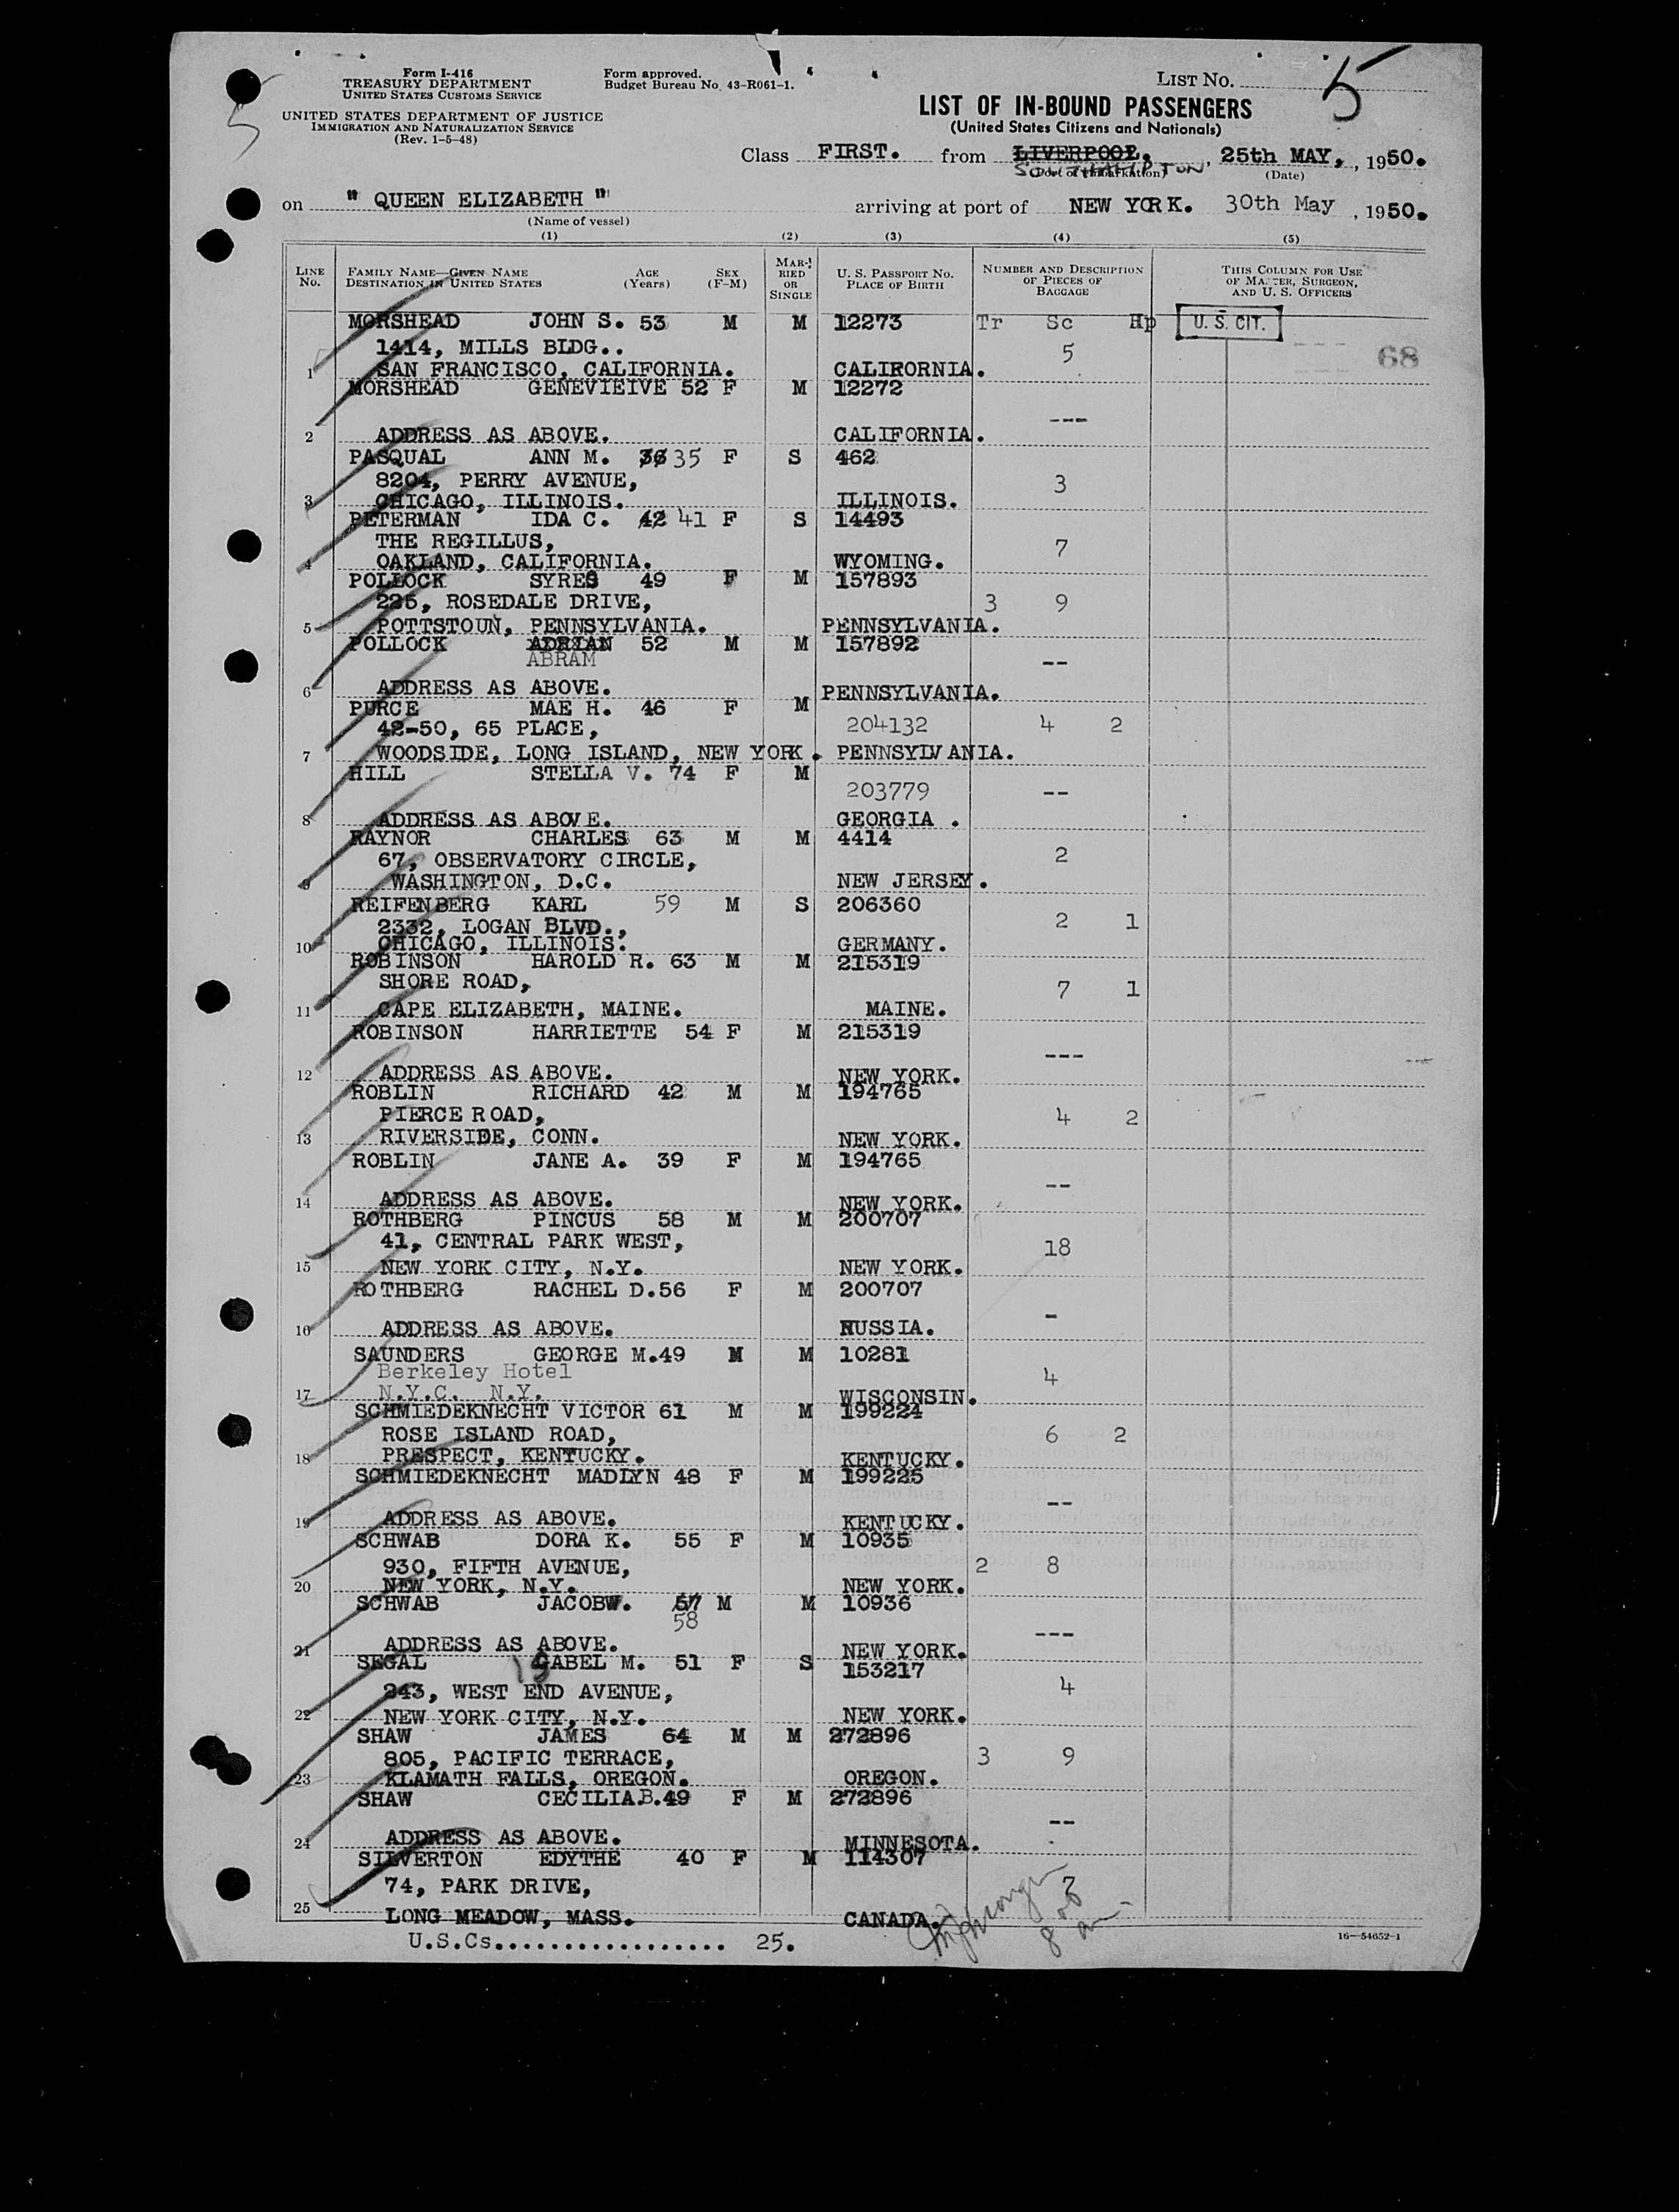 5
Form I-416
TREASURY DEPARTMENT
UNITED STATES CUSTOMS SERVICE
UNITED STATES DEPARTMENT OF JUSTICE
IMMIGRATION AND NATURALIZATION SERVICE
(Rev. 1-5-48)
Form approved.
Budget Bureau No. 43-R061-1.
LIST NO. 5
LIST OF IN-BOUND PASSENGERS
(United States Citizens and Nationals)
Class FIRST. from LIVERPOOL, , 25th MAY, , 1950.
SOUTHAMPTON
(Port of embarkation) (Date)
on " QUEEN ELIZABETH " arriving at port of NEW YORK. 30th May , 1950.
(Name of vessel)
(1) (2) (3) (4) (5)
LINE No. FAMILY NAME—GIVEN NAME DESTINATION IN UNITED STATES AGE (Years) SEX (F-M) MARRIED OR SINGLE U. S. PASSPORT NO. PLACE OF BIRTH NUMBER AND DESCRIPTION OF PIECES OF BAGGAGE THIS COLUMN FOR USE OF MASTER, SURGEON, AND U. S. OFFICERS
MORSHEAD JOHN S. 53 M M 12273 Tr Sc Hp U. S. CIT.
1414, MILLS BLDG.. 5 68
1 SAN FRANCISCO, CALIFORNIA. CALIFORNIA.
MORSHEAD GENEVIEIVE 52 F M 12272
---
2 ADDRESS AS ABOVE. CALIFORNIA.
PASQUAL ANN M. 36 35 F S 462
8204, PERRY AVENUE, 3
3 CHICAGO, ILLINOIS. ILLINOIS.
PETERMAN IDA C. 42 41 F S 14493
THE REGILLUS, 7
4 OAKLAND, CALIFORNIA. WYOMING.
POLLOCK SYRES 49 F M 157893
225, ROSEDALE DRIVE, 3 9
5 POTTSTOUN, PENNSYLVANIA. PENNSYLVANIA.
POLLOCK ADRIAN 52 M M 157892
ABRAM --
6 ADDRESS AS ABOVE. PENNSYLVANIA.
PURCE MAE H. 46 F M
42-50, 65 PLACE, 204132 4 2
7 WOODSIDE, LONG ISLAND, NEW YORK. PENNSYLVANIA.
HILL STELLA V. 74 F M
203779 --
8 ADDRESS AS ABOVE. GEORGIA .
RAYNOR CHARLES 63 M M 4414
67, OBSERVATORY CIRCLE, 2
9 WASHINGTON, D.C. NEW JERSEY.
REIFENBERG KARL 59 M S 206360
2332, LOGAN BLVD., 2 1
10 CHICAGO, ILLINOIS. GERMANY.
ROBINSON HAROLD R. 63 M M 215319
SHORE ROAD, 7 1
11 CAPE ELIZABETH, MAINE. MAINE.
ROBINSON HARRIETTE 54 F M 215319
---
12 ADDRESS AS ABOVE. NEW YORK.
ROBLIN RICHARD 42 M M 194765
PIERCE ROAD, 4 2
13 RIVERSIDE, CONN. NEW YORK.
ROBLIN JANE A. 39 F M 194765
--
14 ADDRESS AS ABOVE. NEW YORK.
ROTHBERG PINCUS 58 M M 200707
41, CENTRAL PARK WEST, 18
15 NEW YORK CITY, N.Y. NEW YORK.
ROTHBERG RACHEL D. 56 F M 200707
-
16 ADDRESS AS ABOVE. RUSSIA.
SAUNDERS GEORGE M. 49 M M 10281
Berkeley Hotel 4
17 N.Y.C. N.Y. WISCONSIN.
SCHMIEDEKNECHT VICTOR 61 M M 199224
ROSE ISLAND ROAD, 6 2
18 PRESPECT, KENTUCKY. KENTUCKY.
SCHMIEDEKNECHT MADLYN 48 F M 199225
--
19 ADDRESS AS ABOVE. KENTUCKY.
SCHWAB DORA K. 55 F M 10935
930, FIFTH AVENUE, 2 8
20 NEW YORK, N.Y. NEW YORK.
SCHWAB JACOB W. 57 M M 10936
58
---
21 ADDRESS AS ABOVE. NEW YORK.
SEGAL GABEL M. 51 F S 153217
243, WEST END AVENUE, 4
22 NEW YORK CITY, N.Y. NEW YORK.
SHAW JAMES 64 M M 272896
805, PACIFIC TERRACE, 3 9
23 KLAMATH FALLS, OREGON. OREGON.
SHAW CECILIA B. 49 F M 272896
--
24 ADDRESS AS ABOVE. MINNESOTA.
SILVERTON EDYTHE 40 F M 114307
74, PARK DRIVE, 7
25 LONG MEADOW, MASS. CANADA.
U.S.Cs.................. 25.
16—54652-1